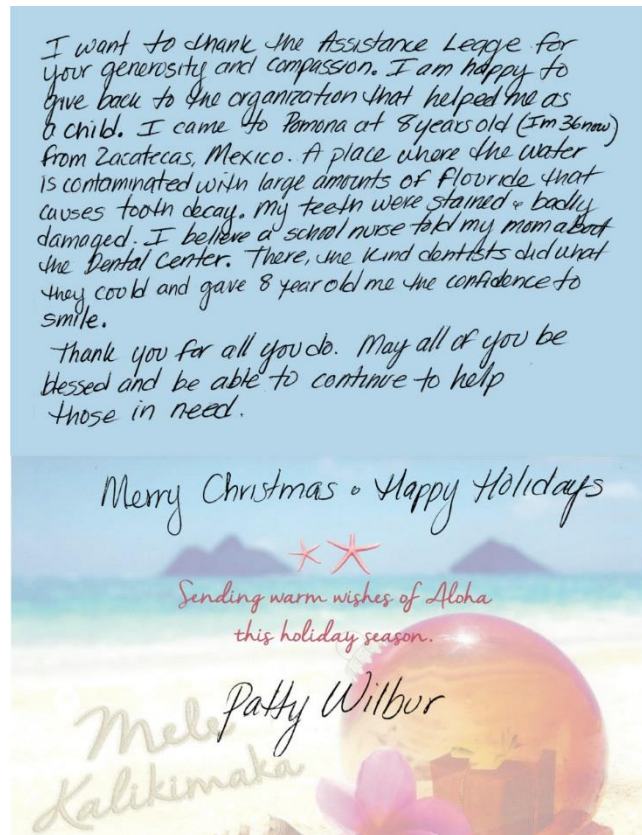 I want to thank the Assistance Legge for
your generosity and compassion. I am happy to
give back to the organization that helped me as
a child. I came to Pomona at 8 years old (Im 36 now)
from Zacatecas, Mexico. A place where the water
is contaminated with large amounts of flouride that
causes tooth decay. My teeth were stained & badly
damaged. I believe a school nurse told my mom about
the Dental Center. There, the kind dentists did what
they could and gave 8 year old me the confidence to
smile.
Thank you for all you do. May all of you be
blessed and be able to continue to help
those in need.
Merry Christmas & Happy Holidays
Sending warm wishes of Aloha
this holiday season.
Patty Wilbur
Mele
Kalikimaka